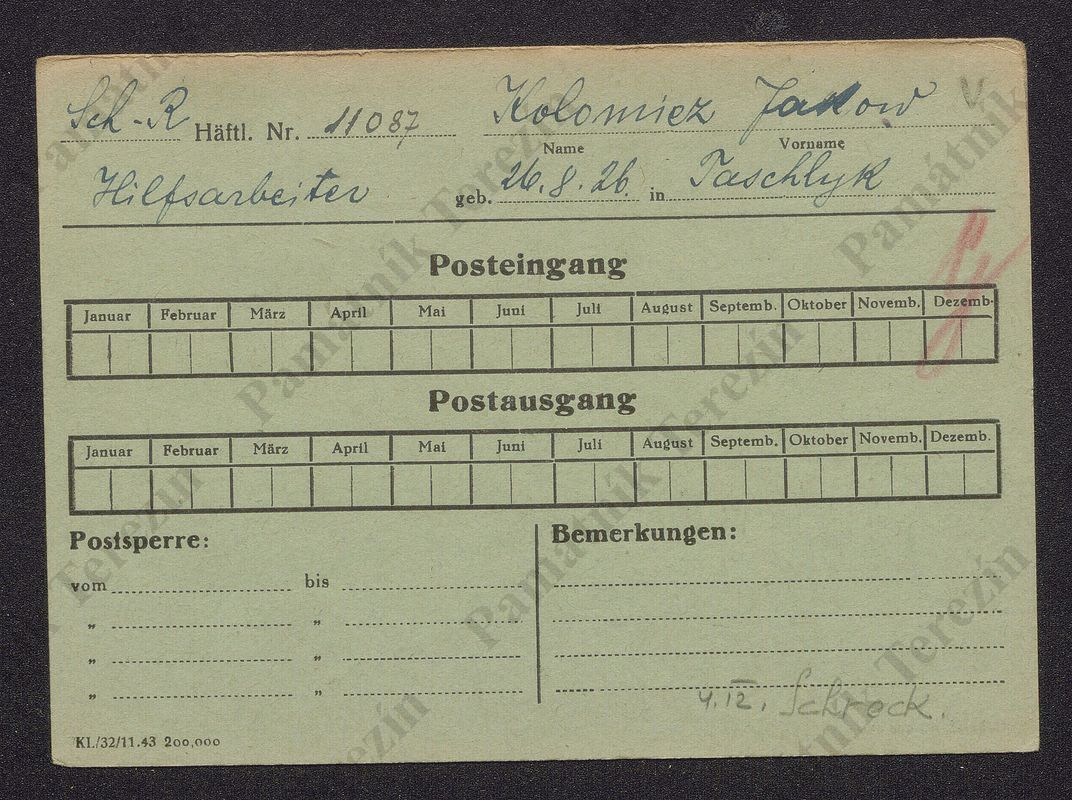 Sch-R Häftl. Nr. 11087 Kolomiez Jakow V
Name Vorname
Hilfsarbeiter geb. 26.8.26. in Taschlyk
Posteingang
Januar Februar März April Mai Juni Juli August Septemb. Oktober Novemb. Dezemb.
Postausgang
Januar Februar März April Mai Juni Juli August Septemb. Oktober Novemb. Dezemb.
Postsperre: Bemerkungen:
vom bis
„ „
„ „
„ „
4.IX. Schrock.
KL/32/11.43 200,000
Památník Terezín